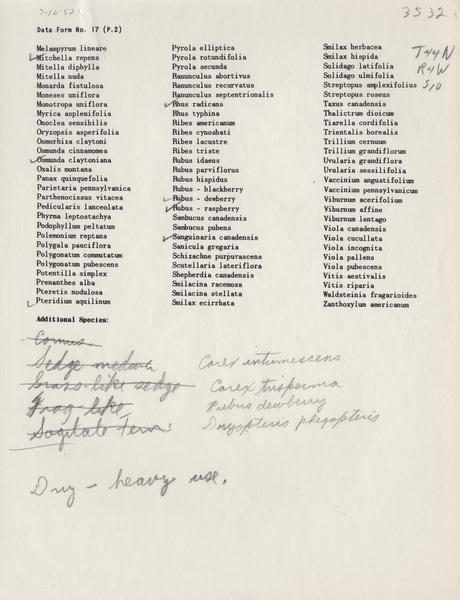 7-16-52
3532
Data Form No. 17 (P.2)
T44N
R4W
S10
Melampyrum lineare
Mitchella repens
Mitella diphylla
Mitella nuda
Monarda fistulosa
Moneses uniflora
Monotropa uniflora
Myrica asplenifolia
Onoclea sensibilis
Oryzopsis asperifolia
Osmorhiza claytoni
Osmunda cinnamomea
Osmunda claytoniana
Oxalis montana
Panax quinquefolia
Parietaria pennsylvanica
Parthenocissus vitacea
Pedicularis lanceolata
Phyrma leptostachya
Podophyllum peltatum
Polemonium reptans
Polygala pauciflora
Polygonatum commutatum
Polygonatum pubescens
Potentilla simplex
Prenanthes alba
Pteretis nodulosa
Pteridium aquilinum
Pyrola elliptica
Pyrola rotundifolia
Pyrola secunda
Ranunculus abortivus
Ranunculus recurvatus
Ranunculus septentrionalis
Rhus radicans
Rhus typhina
Ribes americanum
Ribes cynosbati
Ribes lacustre
Ribes triste
Rubus idaeus
Rubus parviflorus
Rubus hispidus
Rubus - blackberry
Rubus - dewberry
Rubus - raspberry
Sambucus canadensis
Sambucus pubens
Sanguinaria canadensis
Sanicula gregaria
Schizachne purpurascens
Scutellaria lateriflora
Shepherdia canadensis
Smilacina racemosa
Smilacina stellata
Smilax ecirrhata
Smilax herbacea
Smilax hispida
Solidago latifolia
Solidago ulmifolia
Streptopus amplexifolius
Streptopus roseus
Taxus canadensis
Thalictrum dioicum
Tiarella cordifolia
Trientalis borealis
Trillium cernuum
Trillium grandiflorum
Uvularia grandiflora
Uvularia sessilifolia
Vaccinium angustifolium
Vaccinium pennsylvanicum
Viburnum acerifolium
Viburnum affine
Viburnum lentago
Viola canadensis
Viola cucullata
Viola incognita
Viola pallens
Viola pubescens
Vitis aestivalis
Vitis riparia
Waldsteinia fragarioides
Zanthoxylum americanum
Additional Species:
Cornus
Sedge medium
Grass-like sedge
Frag-like
Sagitate Fern
Carex intumescens
Carex trisperma
Rubus dewberry
Dryopteris phegopteris
Dry - heavy use.